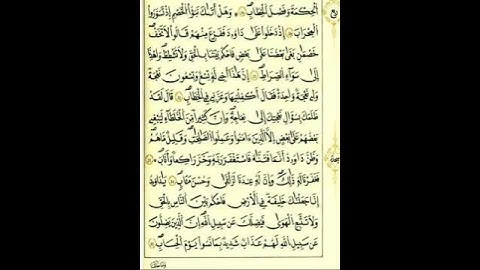 ٱلْحِكْمَةَ وَفَصْلَ ٱلْخِطَابِ ۝ وَهَلْ أَتَىٰكَ نَبَؤُا۟ ٱلْخَصْمِ إِذْ تَسَوَّرُوا۟
ٱلْمِحْرَابَ ۝ إِذْ دَخَلُوا۟ عَلَىٰ دَاوُۥدَ فَفَزِعَ مِنْهُمْ قَالُوا۟ لَا تَخَفْ
خَصْمَانِ بَغَىٰ بَعْضُنَا عَلَىٰ بَعْضٍ فَٱحْكُم بَيْنَنَا بِٱلْحَقِّ وَلَا تُشْطِطْ وَٱهْدِنَآ
إِلَىٰ سَوَآءِ ٱلصِّرَٰطِ ۝ إِنَّ هَٰذَآ أَخِى لَهُۥ تِسْعٌ وَتِسْعُونَ نَعْجَةً
وَلِىَ نَعْجَةٌ وَٰحِدَةٌ فَقَالَ أَكْفِلْنِيهَا وَعَزَّنِى فِى ٱلْخِطَابِ ۝ قَالَ لَقَدْ
ظَلَمَكَ بِسُؤَالِ نَعْجَتِكَ إِلَىٰ نِعَاجِهِۦ وَإِنَّ كَثِيرًا مِّنَ ٱلْخُلَطَآءِ لَيَبْغِى
بَعْضُهُمْ عَلَىٰ بَعْضٍ إِلَّا ٱلَّذِينَ ءَامَنُوا۟ وَعَمِلُوا۟ ٱلصَّٰلِحَٰتِ وَقَلِيلٌ مَّا هُمْ
وَظَنَّ دَاوُۥدُ أَنَّمَا فَتَنَّٰهُ فَٱسْتَغْفَرَ رَبَّهُۥ وَخَرَّ رَاكِعًا وَأَنَابَ ۝
فَغَفَرْنَا لَهُۥ ذَٰلِكَ وَإِنَّ لَهُۥ عِندَنَا لَزُلْفَىٰ وَحُسْنَ مَـَٔابٍ ۝ يَٰدَاوُۥدُ
إِنَّا جَعَلْنَٰكَ خَلِيفَةً فِى ٱلْأَرْضِ فَٱحْكُم بَيْنَ ٱلنَّاسِ بِٱلْحَقِّ
وَلَا تَتَّبِعِ ٱلْهَوَىٰ فَيُضِلَّكَ عَن سَبِيلِ ٱللَّهِ إِنَّ ٱلَّذِينَ يَضِلُّونَ
عَن سَبِيلِ ٱللَّهِ لَهُمْ عَذَابٌ شَدِيدٌۢ بِمَا نَسُوا۟ يَوْمَ ٱلْحِسَابِ ۝